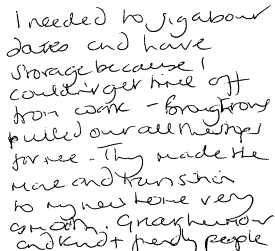 I needed to jig about
dates and have
storage because I
couldn't get time off
from work - Broughtons
pulled out all the stops
for me - They made the
move and transition
to my new home very
smooth. Great humour
and kind + friendly people